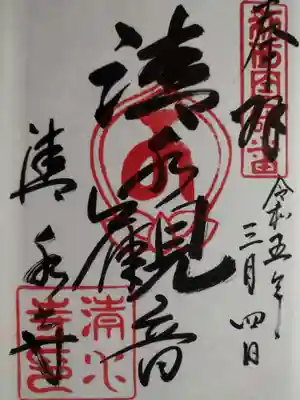 奉拝
令和五年
三月四日
清水觀音
清水寺